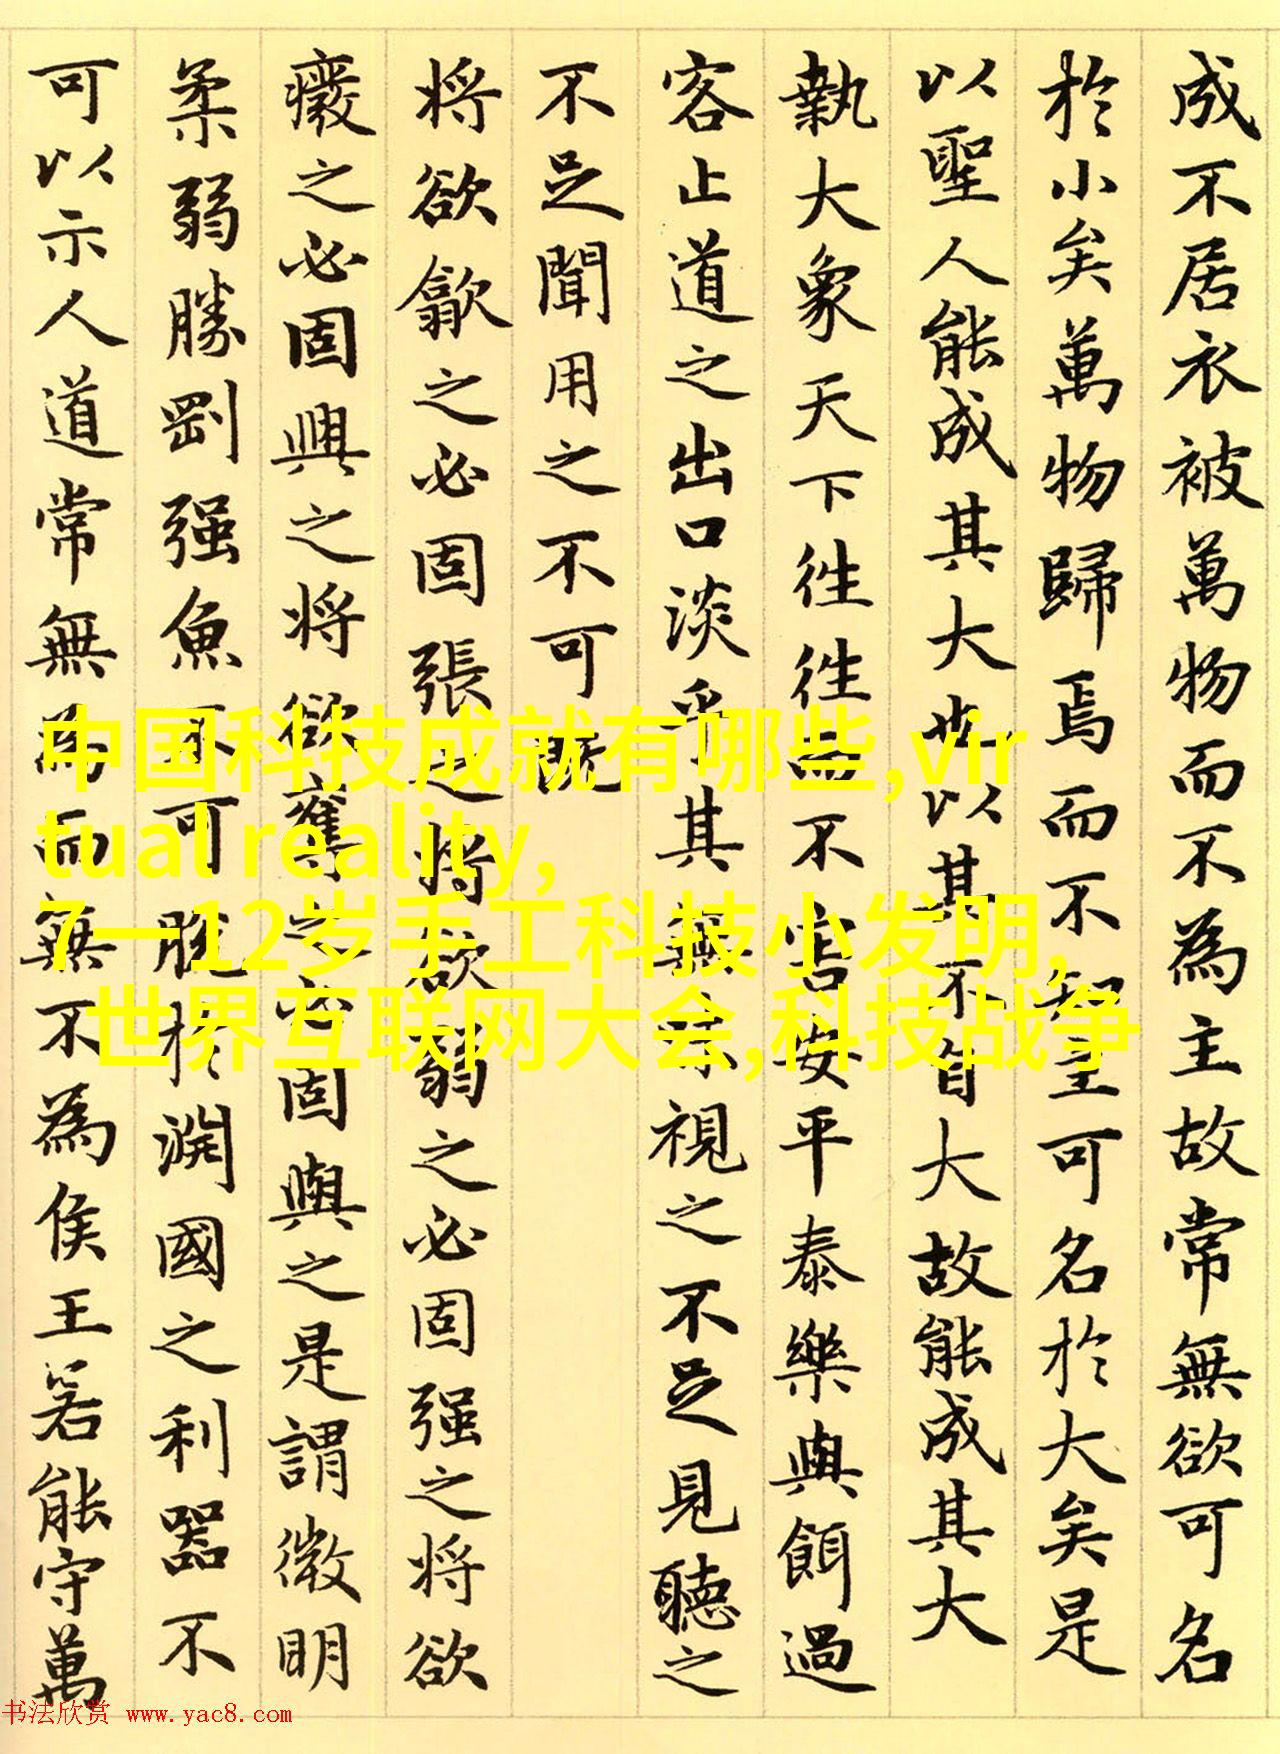 成不居衣被萬物而不為主故常無欲可名
於小矣萬物歸焉而不知主可名於大矣是
以聖人能成其大也以其不自大故能成其大
執大象天下往往而不害安平泰樂與餌過
客止道之出口淡乎其無味視之不足見聽之
不足聞用之不可既
將欲歙之必固張之將欲弱之必固强之將欲
癈之必固興之將欲奪之必固與之是謂微明
柔弱勝剛强魚不可脫於淵國之利器不
可以示人道常無為而無不為侯王若能守萬
中国科技成就有哪些,vir
tual reality,
7一12岁手工科技小发明,
世界互联网大会,科技战争
书法欣赏 www.yac8.com